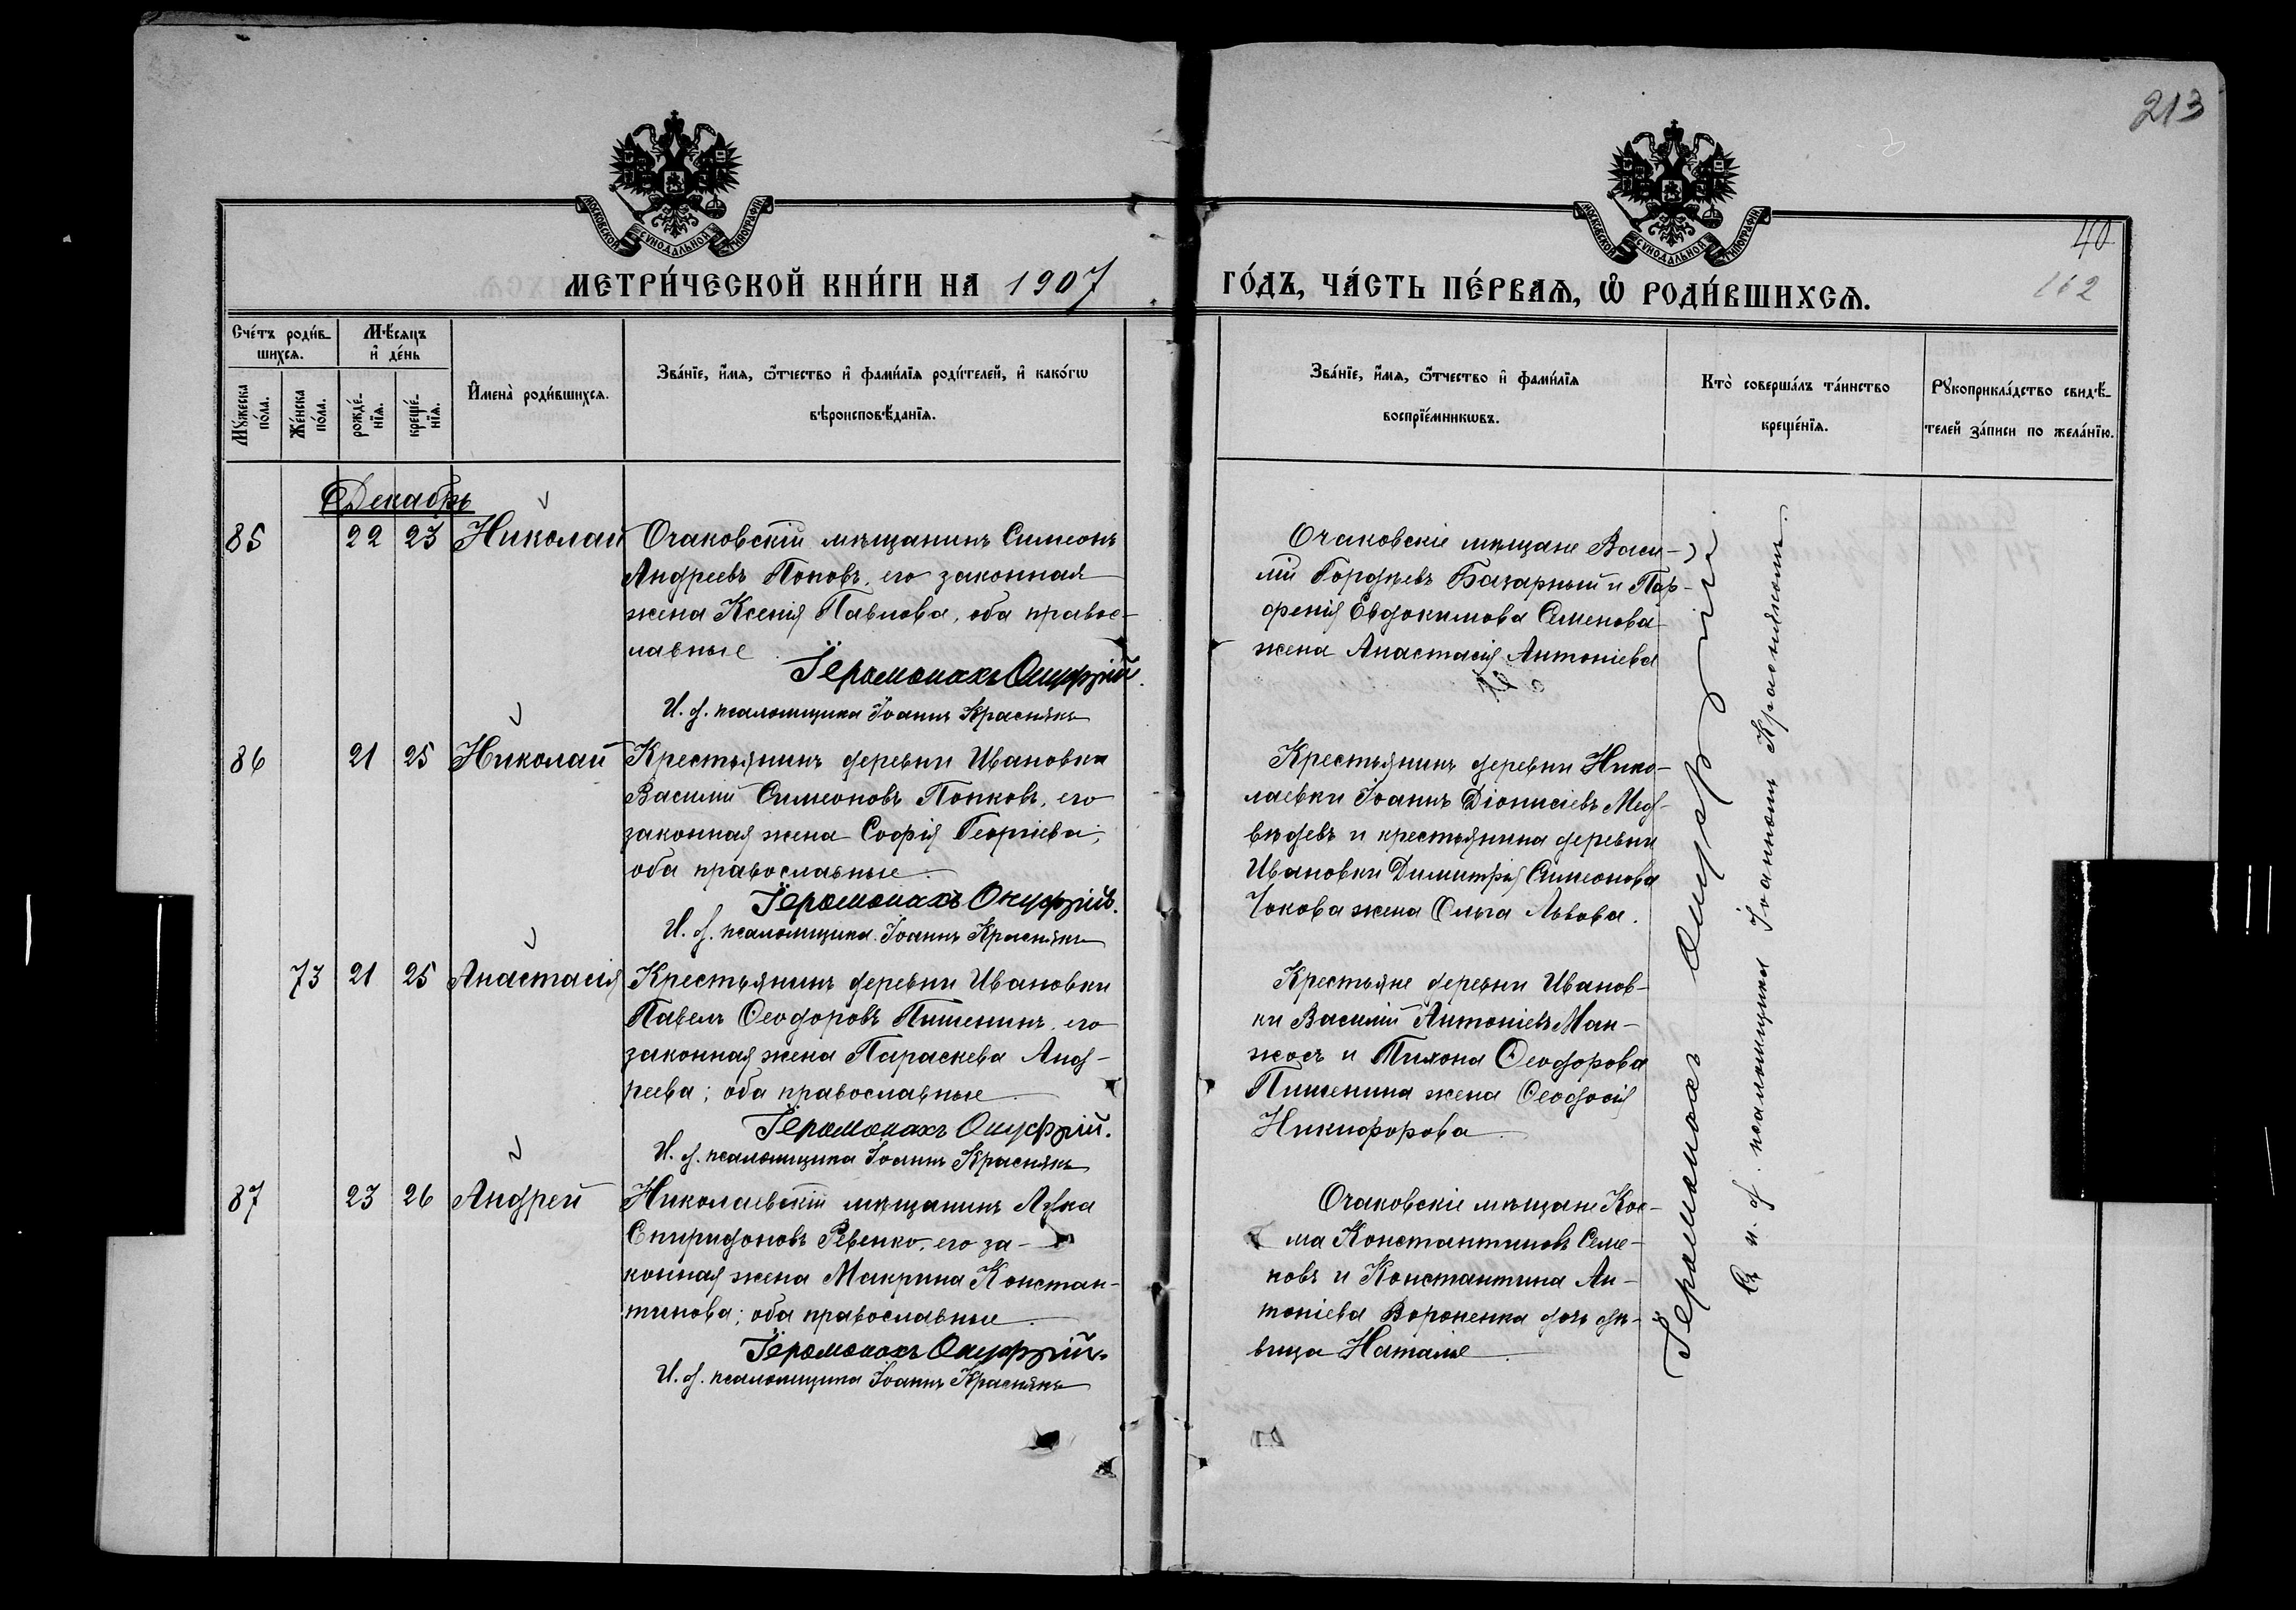 213
МОСКОВСКОЙ СУНОДАЛЬНОЙ ТИПОГРАФІИ
МОСКОВСКОЙ СУНОДАЛЬНОЙ ТИПОГРАФІИ
40
112
МЕТРИ́ЧЕСКОЙ КНИ́ГИ НА 1907
ГО́ДЪ, ЧА́СТЬ ПЕ́РВАѦ, Ѡ҆ РОДИ́ВШИХСѦ.
Сче́тъ роди́в-
шихсѧ.
Мꙋ́жеска
по́ла.
Же́нска
по́ла.
Мѣ́сяцъ
и҆ де́нь
рожде́-
нїѧ.
креще́-
нїѧ.
И҆мена̀ роди́вшихсѧ.
Зва́нїе, и҆́мѧ, ѻ҆́тчество и҆ фами́лїѧ роди́телей, и҆ како́гѡ
вѣроисповѣ́данїѧ.
Зва́нїе, и҆́мѧ, ѻ҆́тчество и҆ фами́лїѧ
воспрїе́мникѡвъ.
Кто̀ соверша́лъ та́инство
креще́нїѧ.
Рꙋкоприкла́дство свидѣ́-
телей за́писи по жела́нїю.
Декабрь
85 22 23 Николай
Очаковскій мѣщанинъ Симеонъ
Андреевъ Поповъ, его законная
жена Ксенія Павлова, оба правос-
лавные
Іеромонахъ Онуфрій.
И. д. псаломщика Іоаннъ Краснякъ
Очаковскіе мѣщане Васи-
лій Гордѣевъ Базарный и Пар-
фенія Евдокимова Семенова
жена Анастасія Антоніева
86 21 25 Николай
Крестьянинъ деревни Ивановки
Василій Симеоновъ Попковъ, его
законная жена Софія Георгіева;
оба православные.
Іеромонахъ Онуфрій.
И. д. псаломщика Іоаннъ Краснякъ
Крестьянинъ деревни Нико-
лаевки Іоаннъ Діонисіевъ Мед-
вѣдевъ и крестьянина деревни
Ивановки Димитрія Симеонова
жена Ольга Львова.
73 21 25 Анастасія
Крестьянинъ деревни Ивановки
Павелъ Ѳеодоровъ Пшенинъ, его
законная жена Параскева Анд-
реева; оба православные
Іеромонахъ Онуфрій.
И. д. псаломщика Іоаннъ Краснякъ
Крестьяне деревни Иванов-
ки Василій Антоніевъ Ман-
жосъ и Тихона Ѳеодорова
Пшенина жена Ѳеодосія
Никифорова
87 23 26 Андрей
Николаевскій мѣщанинъ Лука
Спиридоновъ Ревенко, его за-
конная жена Макрина Констан-
тинова; оба православные
Іеромонахъ Онуфрій.
И. д. псаломщика Іоаннъ Краснякъ
Очаковскіе мѣщане Кос-
ма Константиновъ Семе-
новъ и Константина Ан-
тоніева Вороненка дочь дѣ-
вица Наталія
Іеромонахъ Онуфрій
Съ и. д. псаломщика Іоанномъ Краснякомъ.